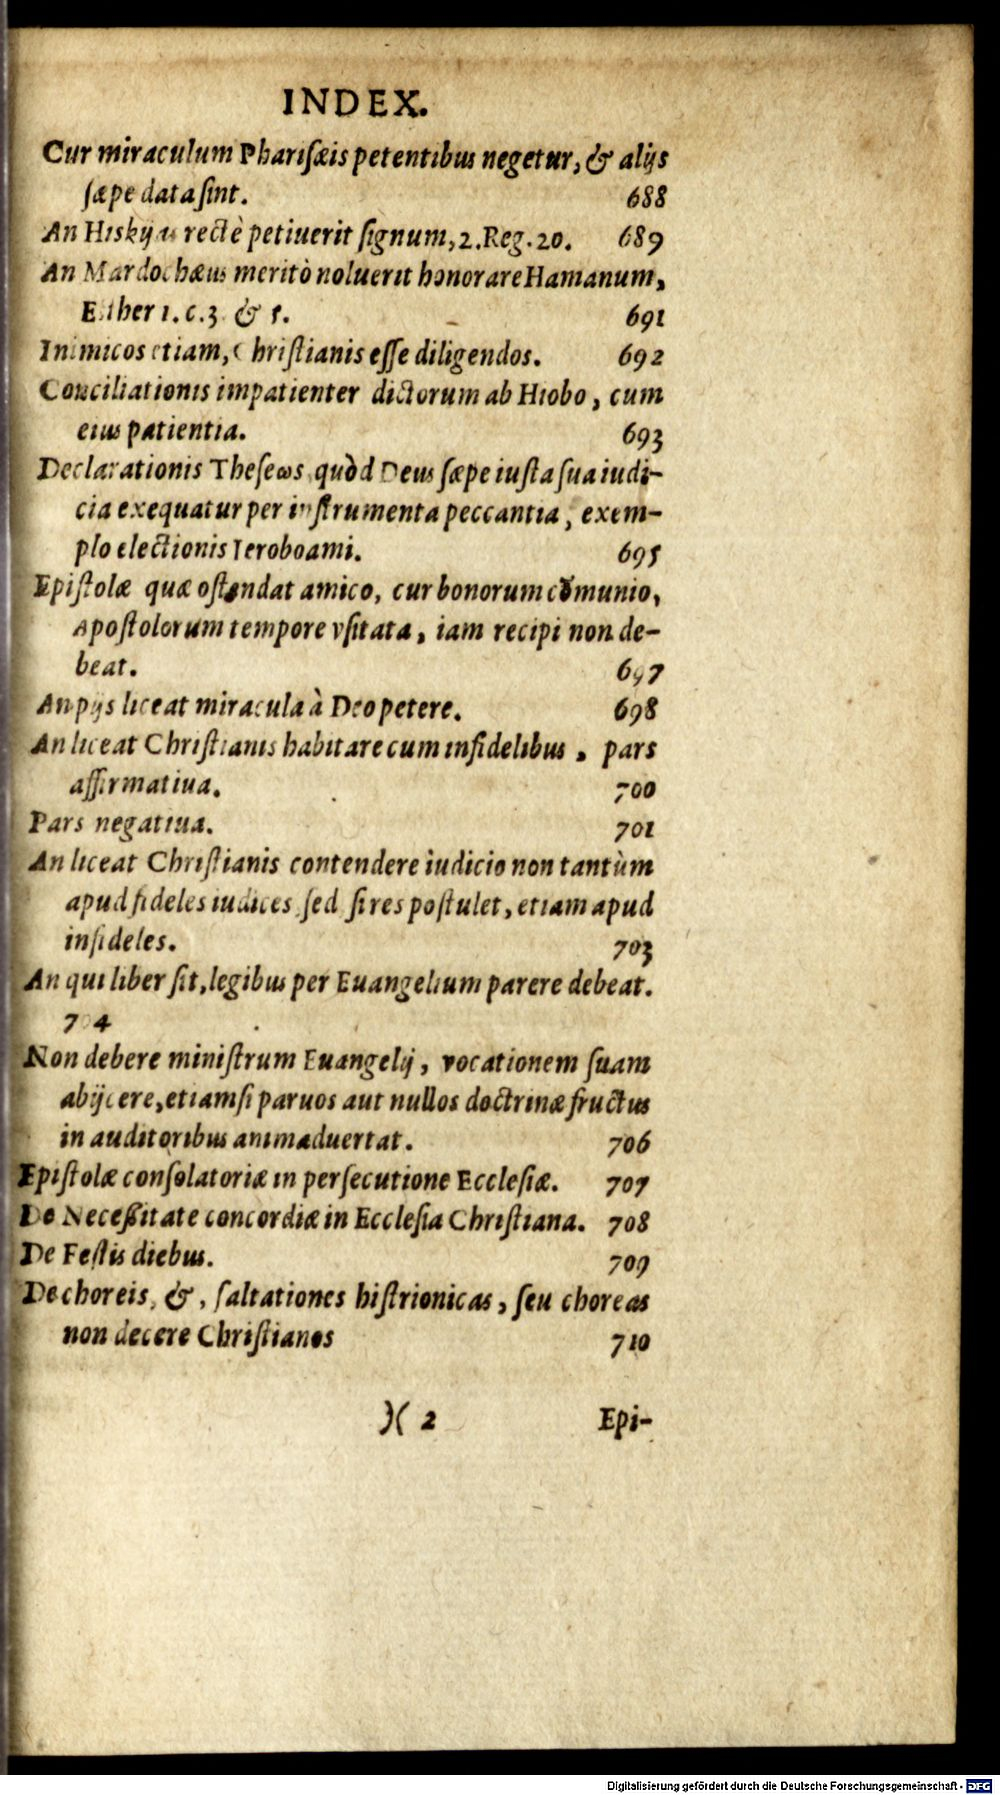 INDEX.
Cur miraculum Phariſæis petentibus negetur, & alijs
ſæpe data ſint. 688
An Hiskij rectè petiuerit ſignum, 2. Reg. 20. 689
An Mardochæus meritò noluerit honorare Hamanum,
Eſther 1. c. 3 & 5. 691
Inimicos etiam, Chriſtianis eſſe diligendos. 692
Conciliationis impatienter dictorum ab Hiobo, cum
eius patientia. 693
Declarationis Theſeωs, quòd Deus ſæpe iuſta ſua iudi-
cia exequatur per inſtrumenta peccantia, exem-
plo electionis Ieroboami. 695
Epiſtolæ quæ oſtendat amico, cur bonorum cōmunio,
Apoſtolorum tempore vſitata, iam recipi non de-
beat. 697
An pijs liceat miracula à Deo petere. 698
An liceat Chriſtianis habitare cum infidelibus, pars
affirmatiua. 700
Pars negatiua. 701
An liceat Chriſtianis contendere iudicio non tantùm
apud fideles iudices, ſed ſi res poſtulet, etiam apud
infideles. 703
An qui liber ſit, legibus per Euangelium parere debeat.
7 4
Non debere miniſtrum Euangelij, vocationem ſuam
abijcere, etiamſi paruos aut nullos doctrinæ fructus
in auditoribus animaduertat. 706
Epiſtolæ conſolatoriæ in perſecutione Eccleſiæ. 707
De Neceßitate concordiæ in Eccleſia Chriſtiana. 708
De Feſtis diebus. 709
De choreis, &, ſaltationes hiſtrionicas, ſeu choreas
non decere Chriſtianos 710
)( 2 Epi-
Digitalisierung gefördert durch die Deutsche Forschungsgemeinschaft - DFG